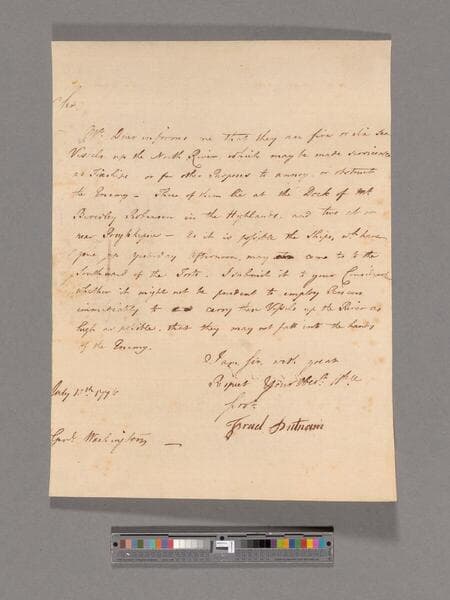 Sir
Mr. Duer informs me that they are five or six Sea
Vessels up the North River which may be made serviceable
as Fireships or for other Purposes to annoy or obstruct
the Enemy – Three of them lie at the Dock of Mr.
Beverley Robinson in the Highlands, and two at or
near Poughkepsie – As it is possible the Ships, wh. have
gone up yesterday afternoon, may come to the
Southward of the Forts – I submit it to your
whether it might not be prudent to employ Persons
immediately to carry these Vessels up the River as
high as possible, that they may not fall into the hands
of the Enemy.
I am Sir with great
Respect Your Obedt. H'ble
Servt.
Israel Putnam
July 1776
Genl. Washington